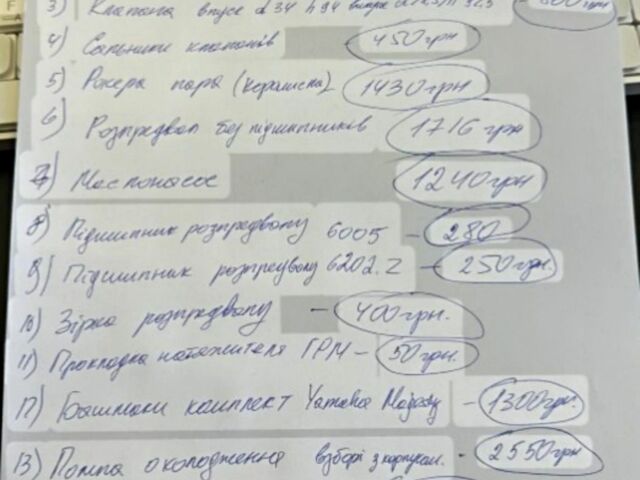 3) Клапана впуск d 34 h 94 випуск - 800 грн
4) Сальники клапанів 450 грн
5) Рокера пара (кераміка) 1430 грн
6) Розпредвал без підшипників 1716 грн
7) Маслонасос 1240 грн
8) Підшипник розпредвалу 6005 - 280
9) Підшипник розпредвалу 6202.Z - 250 грн.
10) Зірка розпредвалу - 400 грн.
11) Прокладка натяжителя ГРМ - 50 грн.
12) Башмаки комплект Yamaha Majesty - 1300 грн.
13) Помпа охолодження взборі з корпусом. - 2550 грн